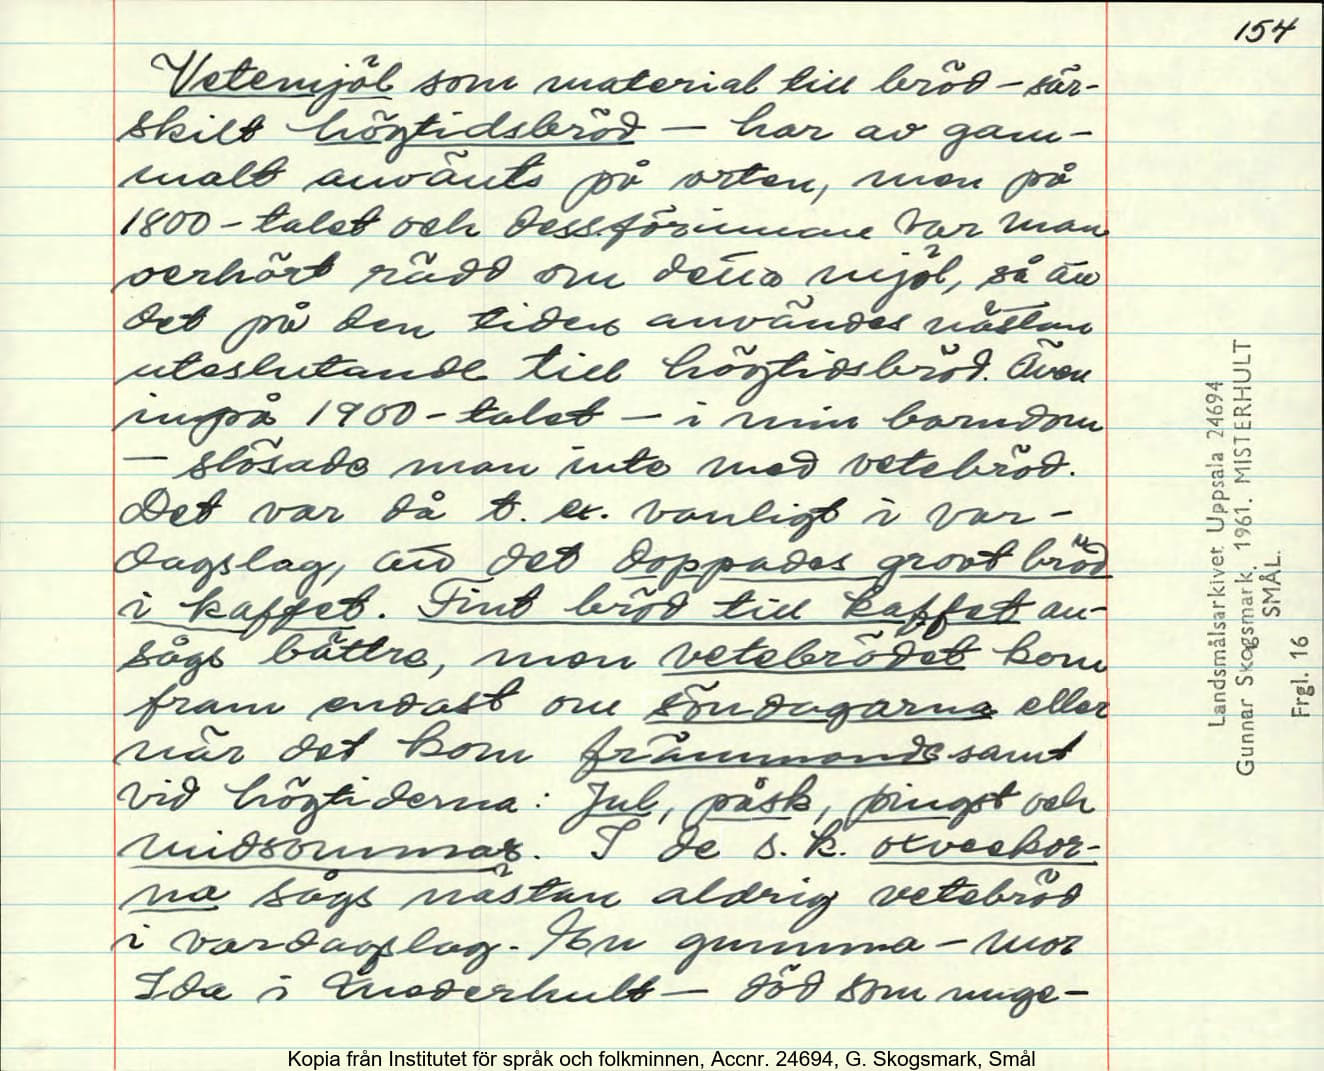 154
Vetemjöl som material till bröd – sär-
skilt högtidsbröd – har av gam-
malt använts på orten, men på
1800-talet och dessförinnan var man
oerhört rädd om detta mjöl, så att
det på den tiden användes nästan
uteslutande till högtidsbröd. Även
inpå 1900-talet – i min barndom
– slösade man inte med vetebröd.
Det var då t. ex. vanligt i var-
dagslag, att det doppades grovt bröd
i kaffet. Fint bröd till kaffet an-
sågs bättre, men vetebrödet kom
fram endast om söndagarna eller
när det kom främmande samt
vid högtiderna: Jul, påsk, pingst och
midsommar. I de s.k. oxveckor-
na sågs nästan aldrig vetebröd
i vardagslag. En gumma – mor
Ida i – död som unge-
Landsmålsarkivet, Uppsala 24694
Gunnar Skogsmark. 1961. MISTERHULT
SMÅL.
Frgl. 16
Kopia från Institutet för språk och folkminnen, Accnr. 24694, G. Skogsmark, Smål